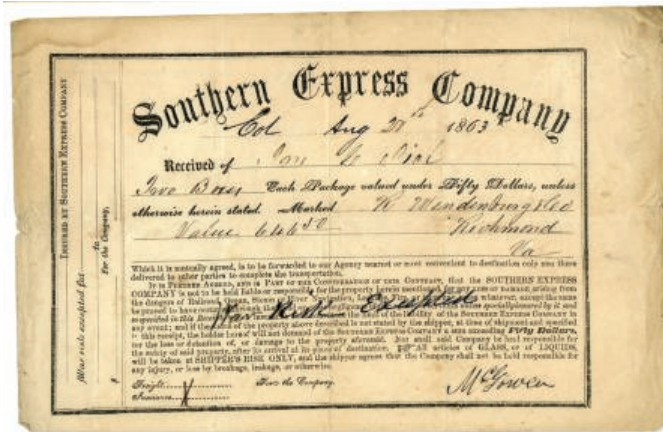 Southern Express Company
Col Aug 20th 1863
Received of
Two Boxes Each Package valued under Fifty Dollars, unless
otherwise herein stated. Marked R Wendenburg & Co
Value Richmond
Va
Which it is mutually agreed, is to be forwarded to our Agency nearest or most convenient to destination only and there
delivered to other parties to complete the transportation.
It is Further Agreed, and is Part of the Consideration of this Contract, that the SOUTHERN EXPRESS
COMPANY is not to be held liable or responsible for the property herein mentioned, for any loss or damage arising from
the dangers of Railroad, Ocean, Steam or River Navigation, whatever, except the same
be proved to have
War Risk Excepted
specified in this Receipt of the liability of the Southern Express Company in
any event; and if the value of the property above described is not stated by the shipper, at time of shipment and specified
in this receipt, the holder hereof will not demand of the Southern Express Company a sum exceeding Fifty Dollars,
for the loss or detention of, or damage to the property aforesaid. Nor shall said Company be held responsible for
the safety of said property, after its arrival at its place of destination. All articles of GLASS, or of LIQUIDS,
will be taken at SHIPPER'S RISK ONLY, and the shipper agrees that the Company shall not be held responsible for
any injury, or loss by breakage, leakage, or otherwise.
Freight For the Company,
Insurance McGowen
Insured by Southern Express Company
to
For the Company,
War risk excepted for
$